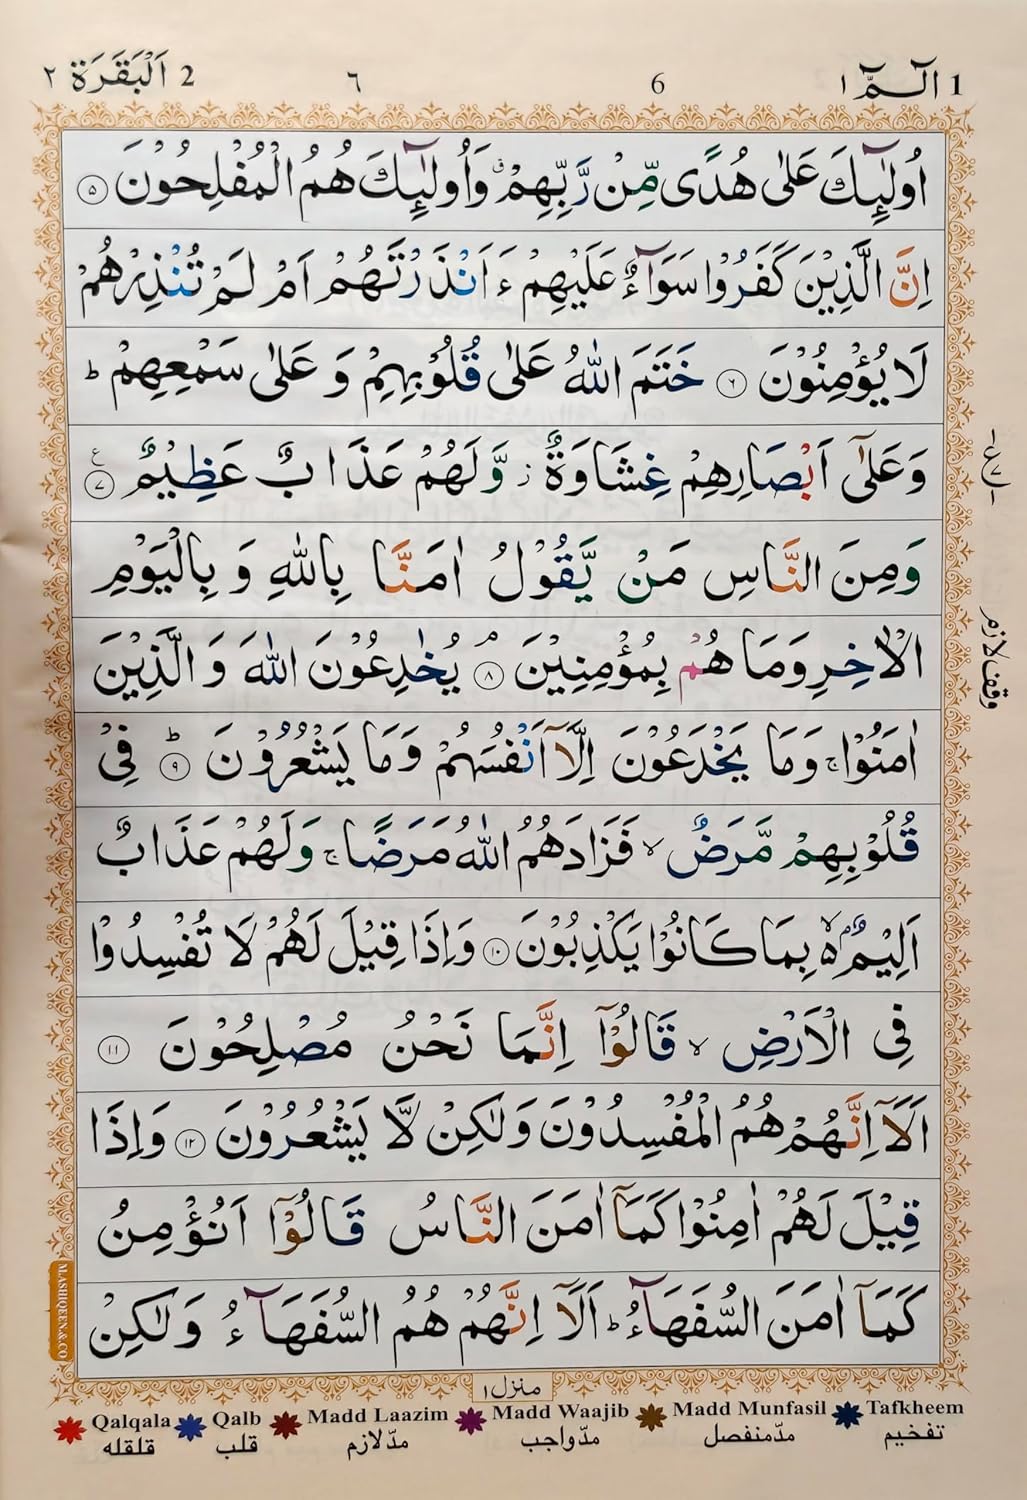 1 الٓــمّٓ ١ 6 ٦ 2 اَلْبَقَرَة ٢
اُولٰٓئِكَ عَلٰى هُدًى مِّنْ رَّبِّهِمْ ۗ وَاُولٰٓئِكَ هُمُ الْمُفْلِحُوْنَ ۝۵
اِنَّ الَّذِيْنَ كَفَرُوْا سَوَآءٌ عَلَيْهِمْ ءَاَنْذَرْتَهُمْ اَمْ لَمْ تُنْذِرْهُمْ
لَا يُؤْمِنُوْنَ ۝۶ خَتَمَ اللّٰهُ عَلٰى قُلُوْبِهِمْ وَ عَلٰى سَمْعِهِمْ ؕ
وَعَلٰٓى اَبْصَارِهِمْ غِشَاوَةٌ ز وَّلَهُمْ عَذَابٌ عَظِيْمٌ ۝۷ ع
وَمِنَ النَّاسِ مَنْ يَّقُوْلُ اٰمَنَّا بِاللّٰهِ وَ بِالْيَوْمِ
الْاٰخِرِ وَمَا هُمْ بِمُؤْمِنِيْنَ ۘ ۝۸ يُخٰدِعُوْنَ اللّٰهَ وَ الَّذِيْنَ
اٰمَنُوْا ۚ وَمَا يَخْدَعُوْنَ اِلَّآ اَنْفُسَهُمْ وَمَا يَشْعُرُوْنَ ؕ ۝۹ فِىْ
قُلُوْبِهِمْ مَّرَضٌ ۙ فَزَادَهُمُ اللّٰهُ مَرَضًا ۚ وَلَهُمْ عَذَابٌ
اَلِيْمٌۢ ۙ۬ بِمَا كَانُوْا يَكْذِبُوْنَ ۝۱۰ وَاِذَا قِيْلَ لَهُمْ لَا تُفْسِدُوْا
فِى الْاَرْضِ ۙ قَالُوْٓا اِنَّمَا نَحْنُ مُصْلِحُوْنَ ۝۱۱
اَلَآ اِنَّهُمْ هُمُ الْمُفْسِدُوْنَ وَلٰكِنْ لَّا يَشْعُرُوْنَ ۝۱۲ وَاِذَا
قِيْلَ لَهُمْ اٰمِنُوْا كَمَآ اٰمَنَ النَّاسُ قَالُوْٓا اَنُؤْمِنُ
كَمَآ اٰمَنَ السُّفَهَآءُ ؕ اَلَآ اِنَّهُمْ هُمُ السُّفَهَآءُ وَلٰكِنْ
وقف لازم
M.ASHIQEEN & CO
منزل ۱
Qalqala Qalb Madd Laazim Madd Waajib Madd Munfasil Tafkheem
قلقله قلب مدّ لازم مدّ واجب مدّ منفصل تفخيم